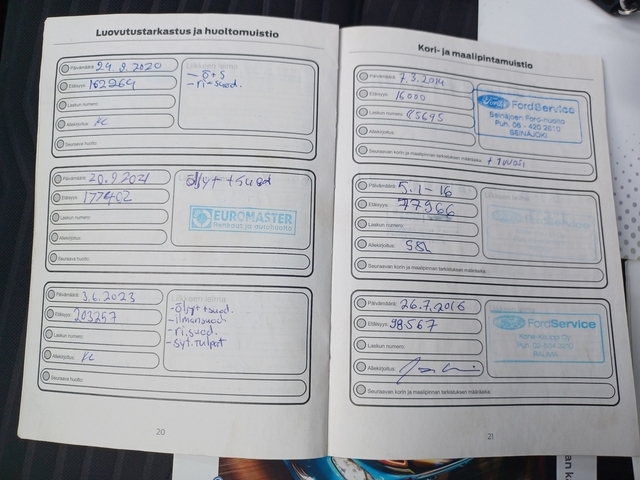 Luovutustarkastus ja huoltomuistio
Päivämäärä: 24.8.2020
Etäisyys: 162264
Laskun numero:
Allekirjoitus:
Seuraava huolto:
- ö+s
- ri-suod.
Päivämäärä: 20.9.2021
Etäisyys: 177402
Laskun numero:
Allekirjoitus:
Seuraava huolto:
öljyt + suod
EUROMASTER
Renkaat ja autohuolto
Päivämäärä: 3.6.2023
Etäisyys: 203257
Laskun numero:
Allekirjoitus:
Seuraava huolto:
Liikkeen leima
- öljyt + suod.
- ilmansuod.
- ri.suod.
- syt.tulpat
20
Kori- ja maalipintamuistio
Päivämäärä: 7.3.2014
Etäisyys: 16000
Laskun numero: 85695
Allekirjoitus:
Seuraavan korin ja maalipinnan tarkistuksen määräaika: + 1 vuosi
Ford Service
Seinäjoen Ford-huolto
SEINÄJOKI
Päivämäärä: 5.1-16
Etäisyys: 77966
Laskun numero:
Allekirjoitus:
Seuraavan korin ja maalipinnan tarkistuksen määräaika:
Päivämäärä: 26.7.2016
Etäisyys: 98567
Laskun numero:
Allekirjoitus:
Seuraavan korin ja maalipinnan tarkistuksen määräaika:
Ford Service
RAUMA
21